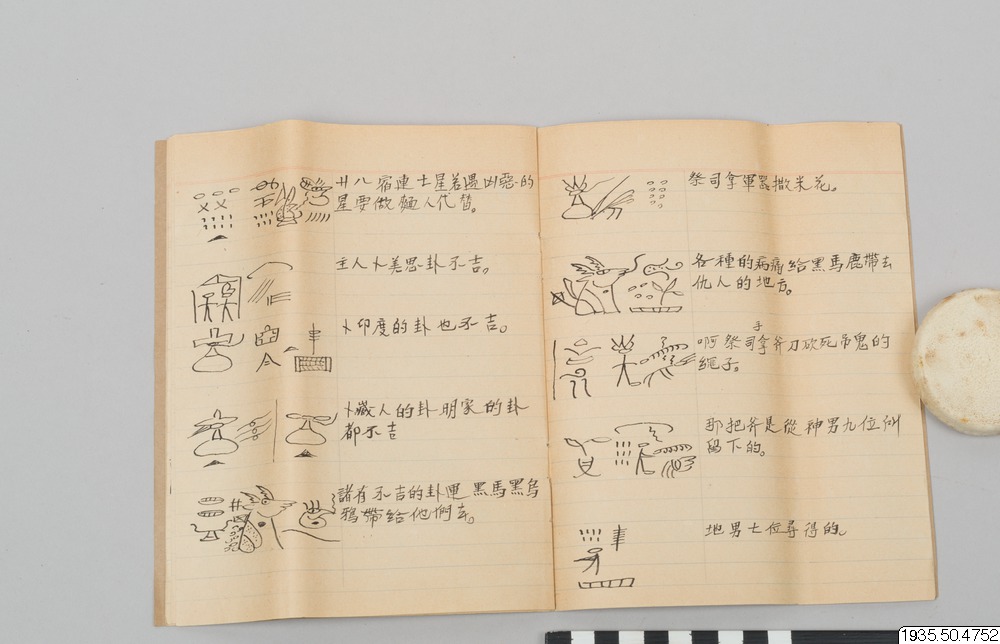 廿八宿連土星若遇凶惡的
星要做麵人代替。
主人卜美思卦不吉。
卜印度的卦也不吉。
卜藏人的卦明家的卦
都不吉
諸有不吉的卦運黑馬黑烏
鴉帶給他們去。
祭司拿軍器撒米花。
各種的病痛給黑馬鹿帶去
仇人的地方。
啊祭司手拿斧刀砍死吊鬼的
繩子。
那把斧是從神男九位
留下的。
地男七位尋得的。
1935.50.4752